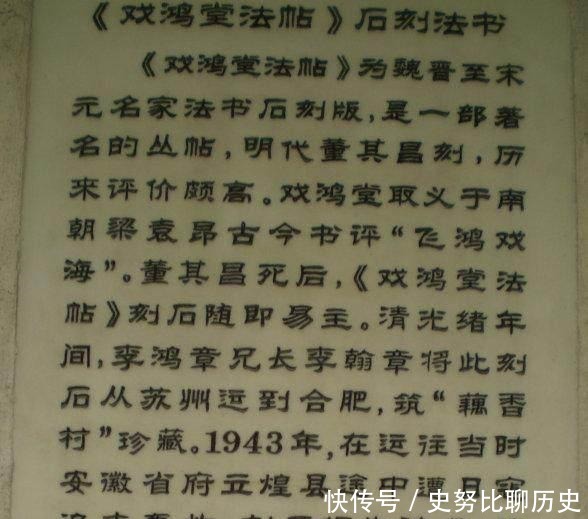 《戏鸿堂法帖》石刻法书
《戏鸿堂法帖》为魏晋至宋
元名家法书石刻版,是一部著
名的丛帖,明代董其昌刻,历
来评价颇高。戏鸿堂取义于南
朝梁袁昂古今书评“飞鸿戏
海”。董其昌死后,《戏鸿堂法
帖》刻石随即易主。清光绪年
间,李鸿章兄长李翰章将此刻
石从苏州运到合肥,筑“藕香
村”珍藏。1943年,在运往当时
安徽省府立煌县途中遭日寇
快传号/史努比聊历史